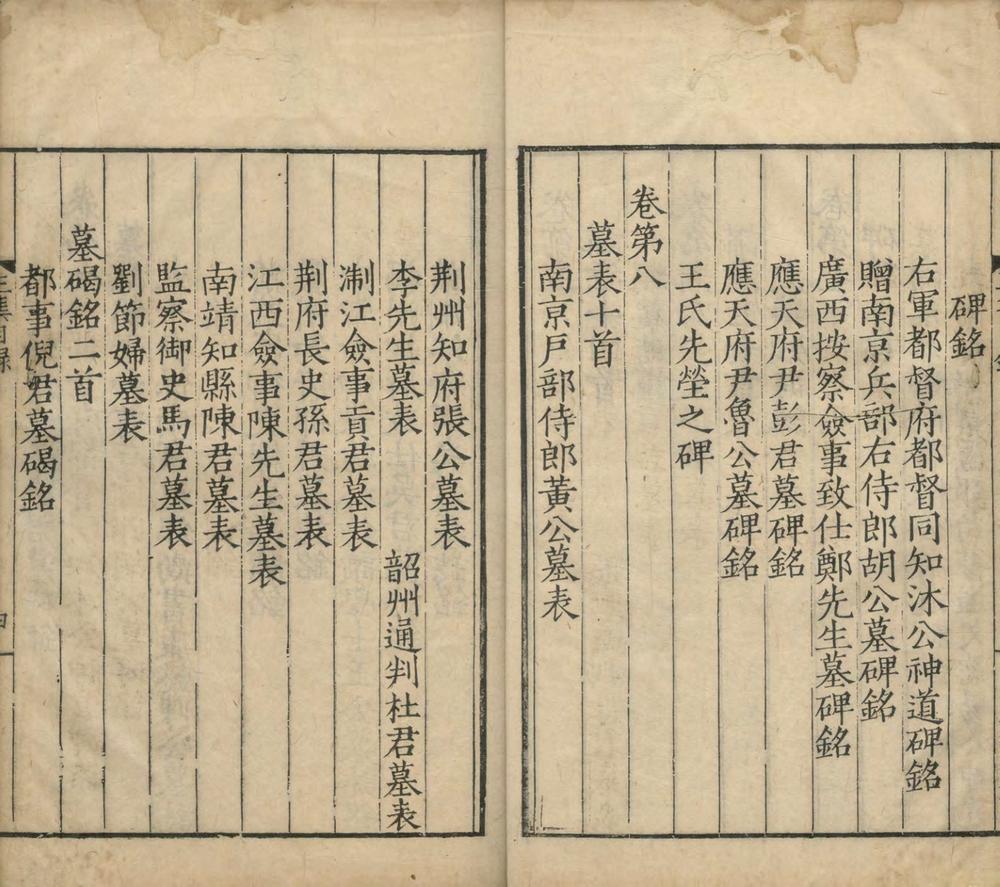 碑銘
右軍都督府都督同知沐公神道碑銘
贈南京兵部右侍郎胡公墓碑銘
廣西按察僉事致仕鄭先生墓碑銘
應天府尹彭君墓碑銘
應天府尹魯公墓碑銘
王氏先塋之碑
卷第八
墓表十首
南京戶部侍郎黃公墓表
荆州知府張公墓表
李先生墓表 韶州通判杜君墓表
淛江僉事貢君墓表
荆府長史孫君墓表
江西僉事陳先生墓表
南靖知縣陳君墓表
監察御史馬君墓表
劉節婦墓表
墓碣銘二首
都事倪君墓碣銘